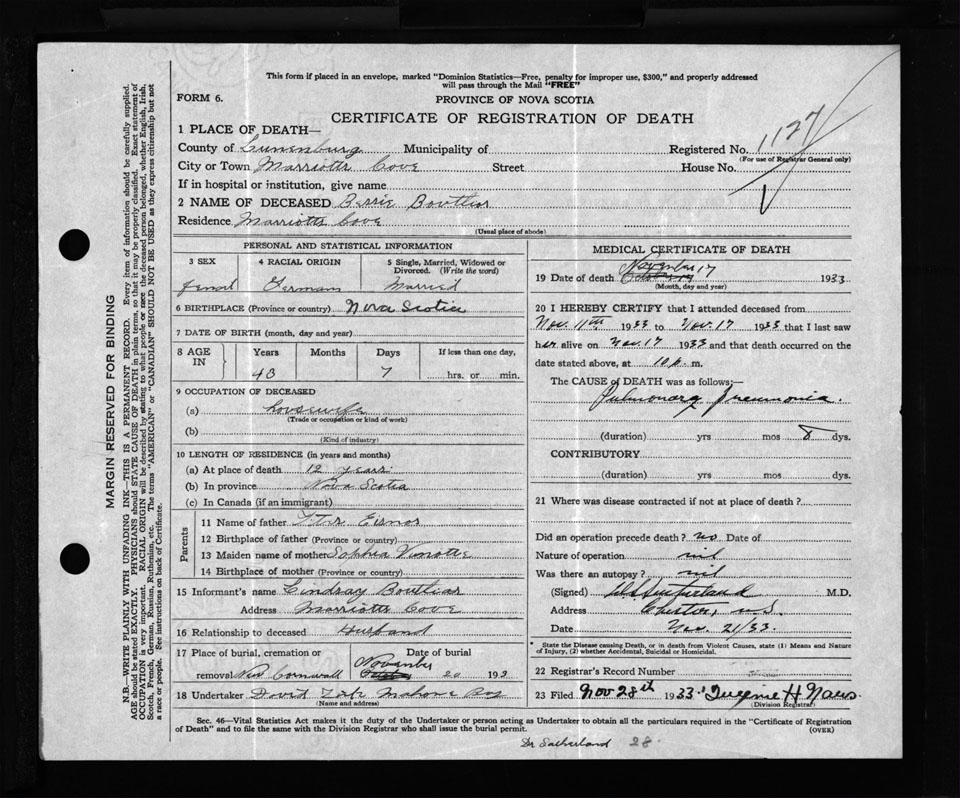 This form if placed in an envelope, marked "Dominion Statistics—Free, penalty for improper use, $300," and properly addressed
will pass through the Mail "FREE"
FORM 6.
PROVINCE OF NOVA SCOTIA
CERTIFICATE OF REGISTRATION OF DEATH
1127
1 PLACE OF DEATH—
County of Lunenburg Municipality of Registered No.
(For use of Registrar General only)
City or Town Marriotts Cove Street House No.
If in hospital or institution, give name
2 NAME OF DECEASED Bessie Boutlier
Residence Marriotts Cove
(Usual place of abode)
PERSONAL AND STATISTICAL INFORMATION
3 SEX 4 RACIAL ORIGIN 5 Single, Married, Widowed or
Divorced. (Write the word)
femal German Married
6 BIRTHPLACE (Province or country) Nova Scotia
7 DATE OF BIRTH (month, day and year)
8 AGE IN Years Months Days If less than one day,
43 7 hrs. or min.
9 OCCUPATION OF DECEASED
(a) housewife
(Trade or occupation or kind of work)
(b)
(Kind of industry)
10 LENGTH OF RESIDENCE (in years and months)
(a) At place of death 12 years
(b) In province Nova Scotia
(c) In Canada (if an immigrant)
Parents
11 Name of father Eisnor
12 Birthplace of father (Province or country)
13 Maiden name of mother Sophia
14 Birthplace of mother (Province or country)
15 Informant's name Lindsay Boutliar
Address Marriotts Cove
16 Relationship to deceased Husband
17 Place of burial, cremation or Date of burial
removal New Cornwall November 20 193
18 Undertaker David Mahone Bay
(Name and address)
MEDICAL CERTIFICATE OF DEATH
19 Date of death November 17 1933
(Month, day and year)
20 I HEREBY CERTIFY that I attended deceased from
Nov. 11th 1933 to Nov. 17 1933 that I last saw
her alive on Nov. 17 1933 and that death occurred on the
date stated above, at 10 p. m.
The CAUSE of DEATH was as follows:—
Pulmonary Pneumonia.
(duration) yrs mos 8 dys.
CONTRIBUTORY
(duration) yrs mos dys.
21 Where was disease contracted if not at place of death?
Did an operation precede death? no Date of
Nature of operation nil
Was there an autopsy? nil
(Signed) Sutherland M.D.
Address Chester, N.S.
Date Nov. 21/33.
* State the Disease causing Death, or in death from Violent Causes, state (1) Means and Nature
of Injury, (2) whether Accidental, Suicidal or Homicidal.
22 Registrar's Record Number
23 Filed Nov 28th 1933. Eugene H Naus.
(Division Registrar)
Sec. 46—Vital Statistics Act makes it the duty of the Undertaker or person acting as Undertaker to obtain all the particulars required in the "Certificate of Registration
of Death" and to file the same with the Division Registrar who shall issue the burial permit. (OVER)
Dr Sutherland 28.
MARGIN RESERVED FOR BINDING
N.B.—WRITE PLAINLY WITH UNFADING INK—THIS IS A PERMANENT RECORD. Every item of information should be carefully supplied.
AGE should be stated EXACTLY. PHYSICIANS should STATE CAUSE OF DEATH in plain terms, so that it may be properly classified. Exact statement of
OCCUPATION is very important. RACIAL ORIGIN will be described by stating to what people or race the deceased person belonged, whether English, Irish,
Scotch, French, German, Russian, Ruthenian, etc. The terms "AMERICAN" or "CANADIAN" SHOULD NOT BE USED as they express citizenship but not
a race or people. See instructions on back of Certificate.